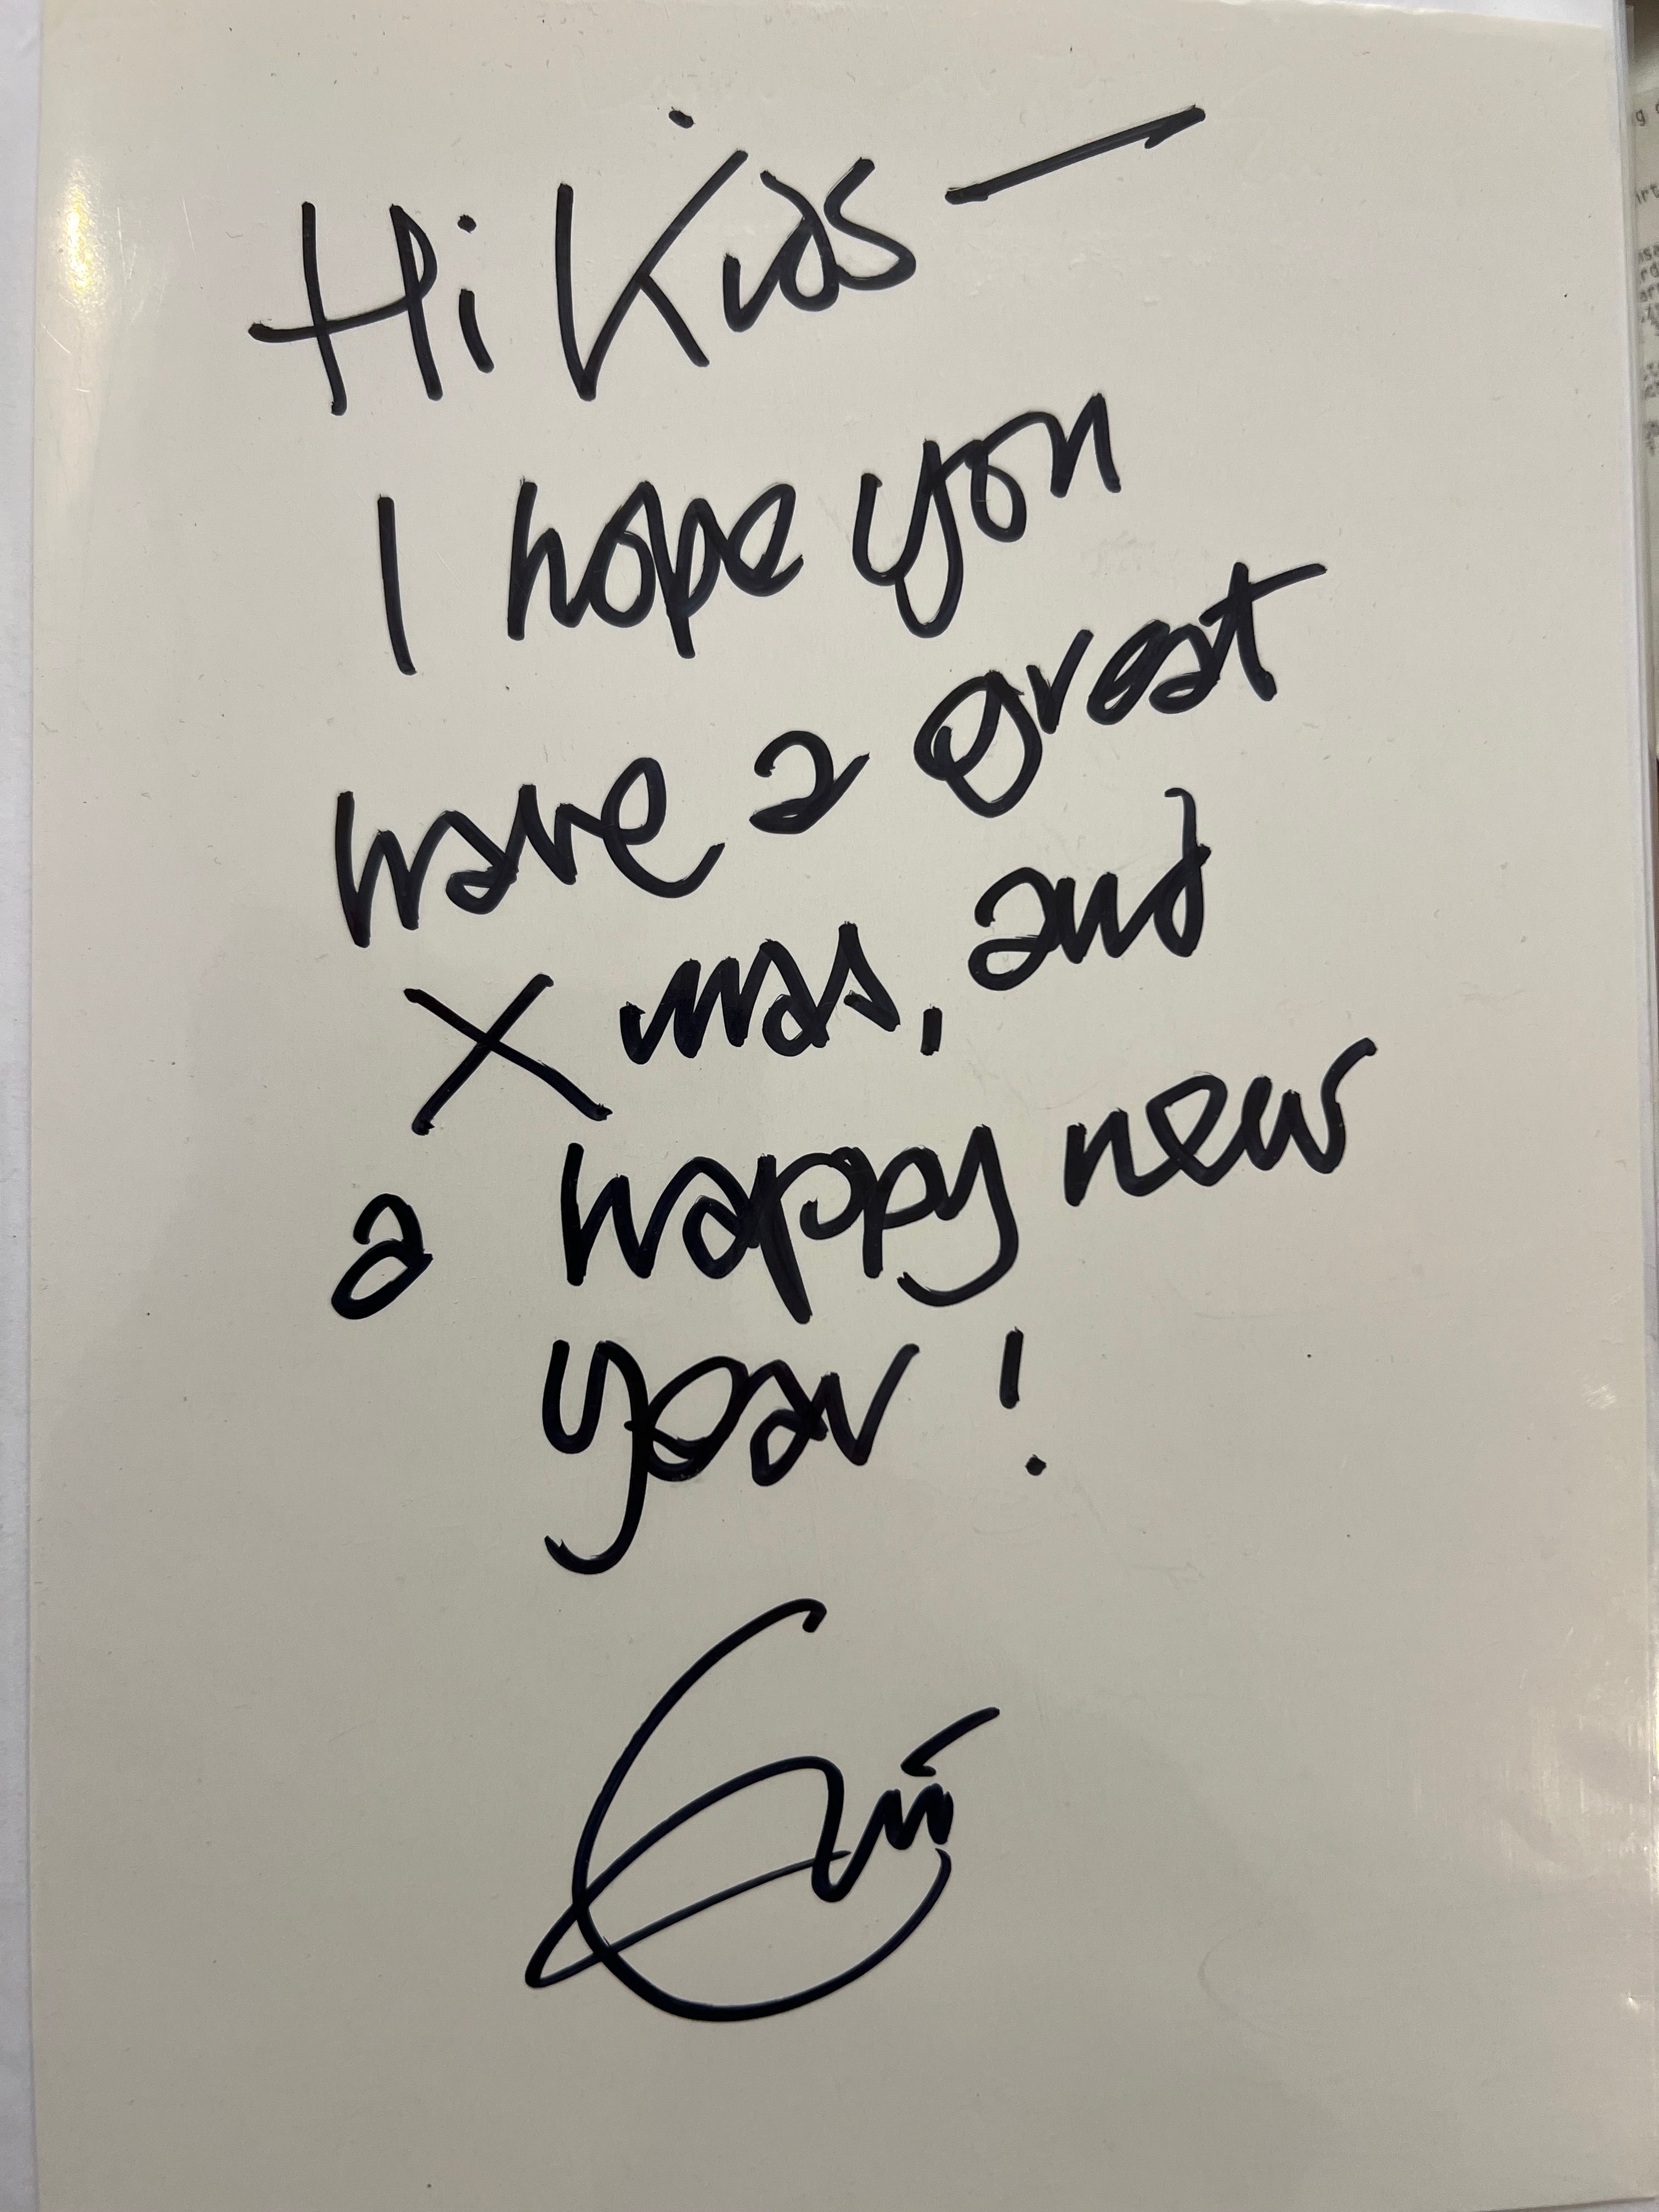 Hi Kids —
I hope you
have a great
X mas, and
a happy new
year!